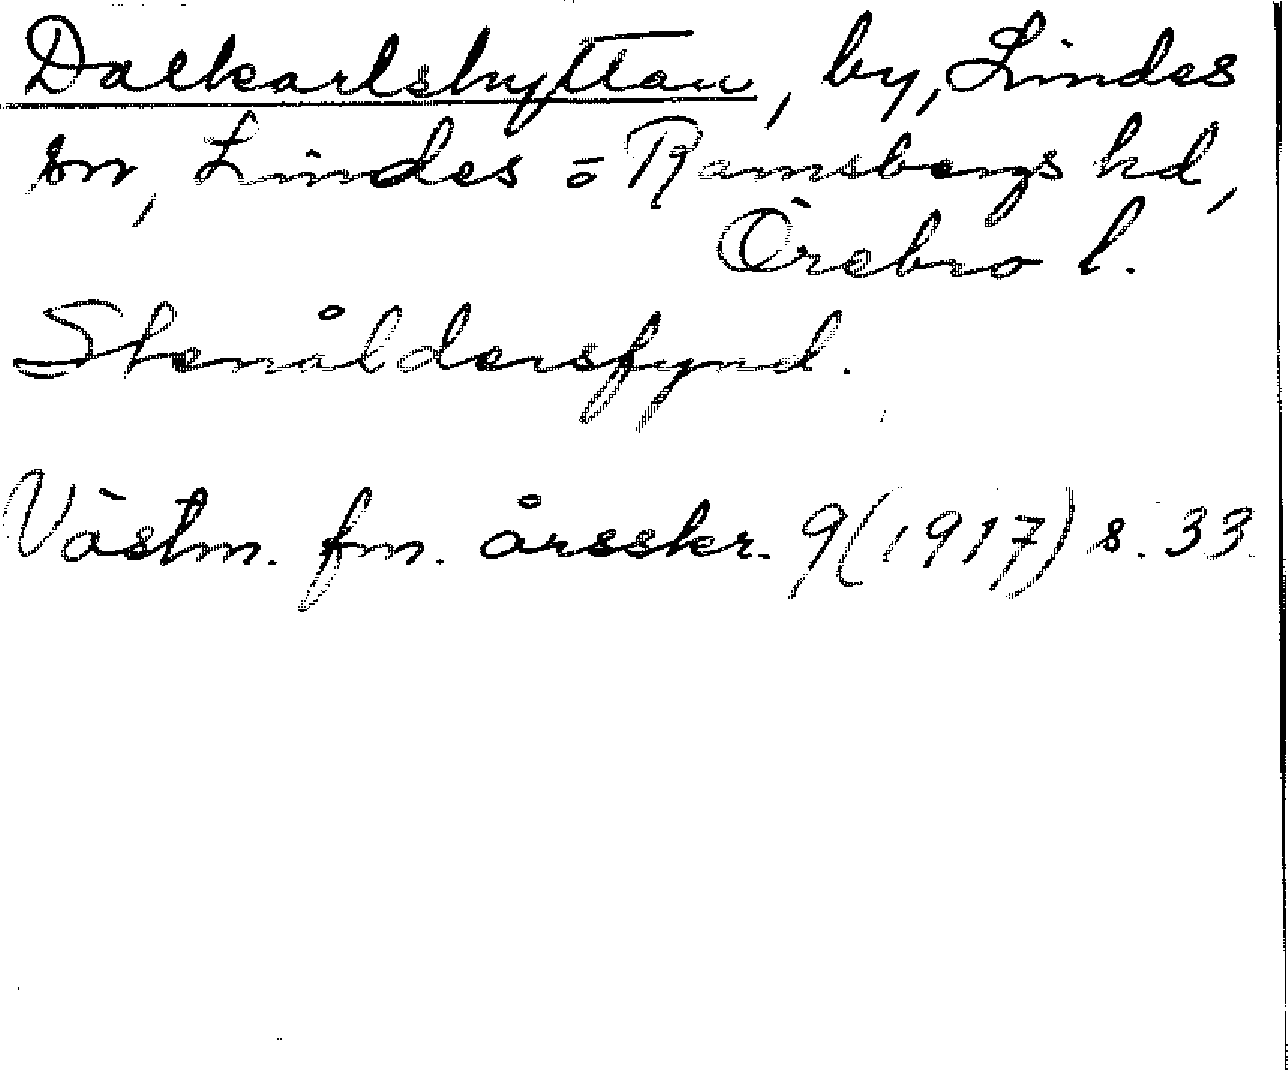 Dalkarlshyttan, by, Lindes
sn, Lindes o Ramsbergs hd,
Örebro l.
Stenåldersfynd.
Västm. fm. årsskr. 9(1917) s. 33